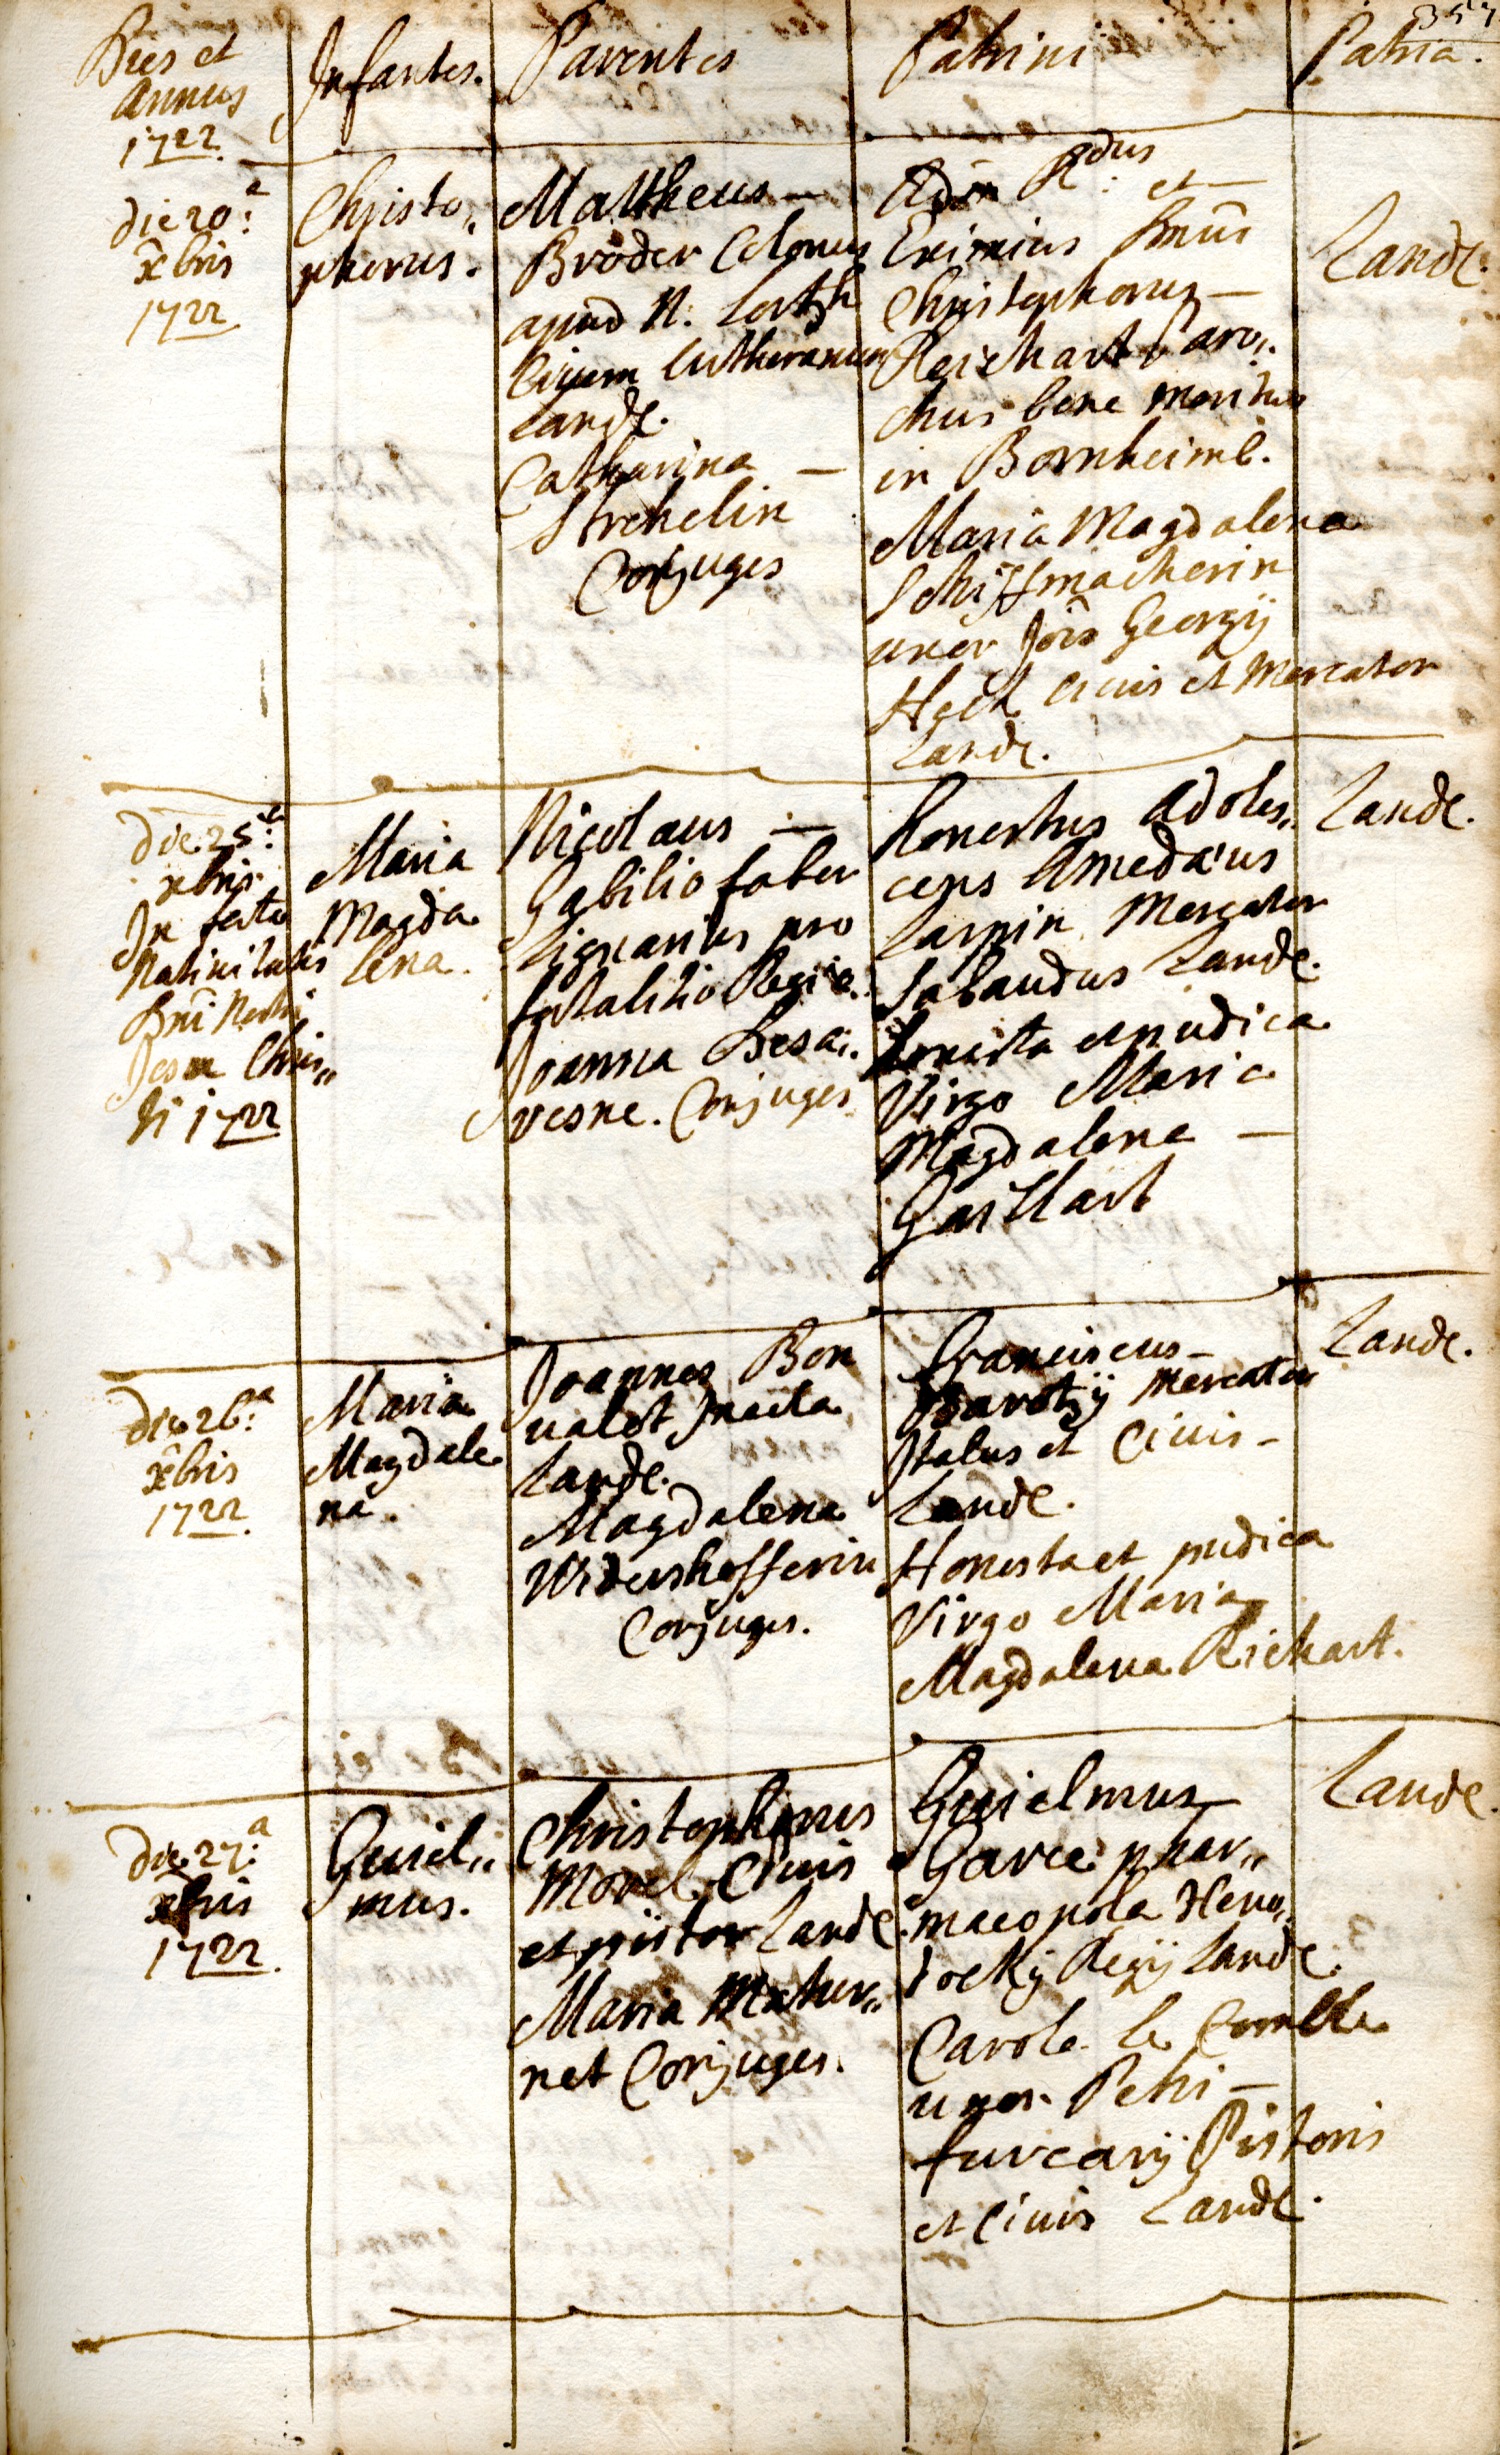 357
Dies et
Annus
1722
Infantes.
Parentes
Patrini
Patria.
die 20:a
xbris
1722
Christo„
phorus.
Mattheus —
Bröder Colonus
apud N.
Civem Lutheranum
Landæ.
Catharina —
Strehelin
Conjuges
Adm Rdus
et —
Eximius Dnus
Christophorus —
Reichart Paro„
chus bene meritus
in Bornheimb.
Maria Magdalena
Schiffmacherin
uxor Jois Georgij
Hech civis et Mercator
Landæ.
Landæ.
die 25:a
xbris
In festo
Nativitatis
Dni Nostri
Jesu Chris„
ti 1722
Maria
Magda
lena.
Nicolaus —
Gabilio faber
Lignarius pro
fortalitio Regio.
Joanna Desa„
vesne. Conjuges
Honestus Adoles„
cens Amedæus
Larpin Mercator
Sabaudus Landæ.
honesta et pudica
Virgo Maria
Magdalena —
Gaillart
Landæ.
die 26:a
xbris
1722
Maria
Magdale
na.
Joannes Bon
valot
Landæ.
Magdalena
Widershofferin
Conjuges.
Franciscus —
Barotzij Mercator
Italus et Civis —
Landæ.
Honesta et pudica
Virgo Maria
Magdalena Richart.
Landæ.
die 27:a
xbris
1722
Guiel„
mus.
Christophorus
Morel Civis
et pistor Landæ.
Maria Mathur„
net Conjuges.
Guielmus —
Garce phar„
macopola Xeno„
dochij Regij Landæ.
Carola le Comtte
uxor Petri —
furcarij Pistoris
et Civis Landæ.
Landæ.